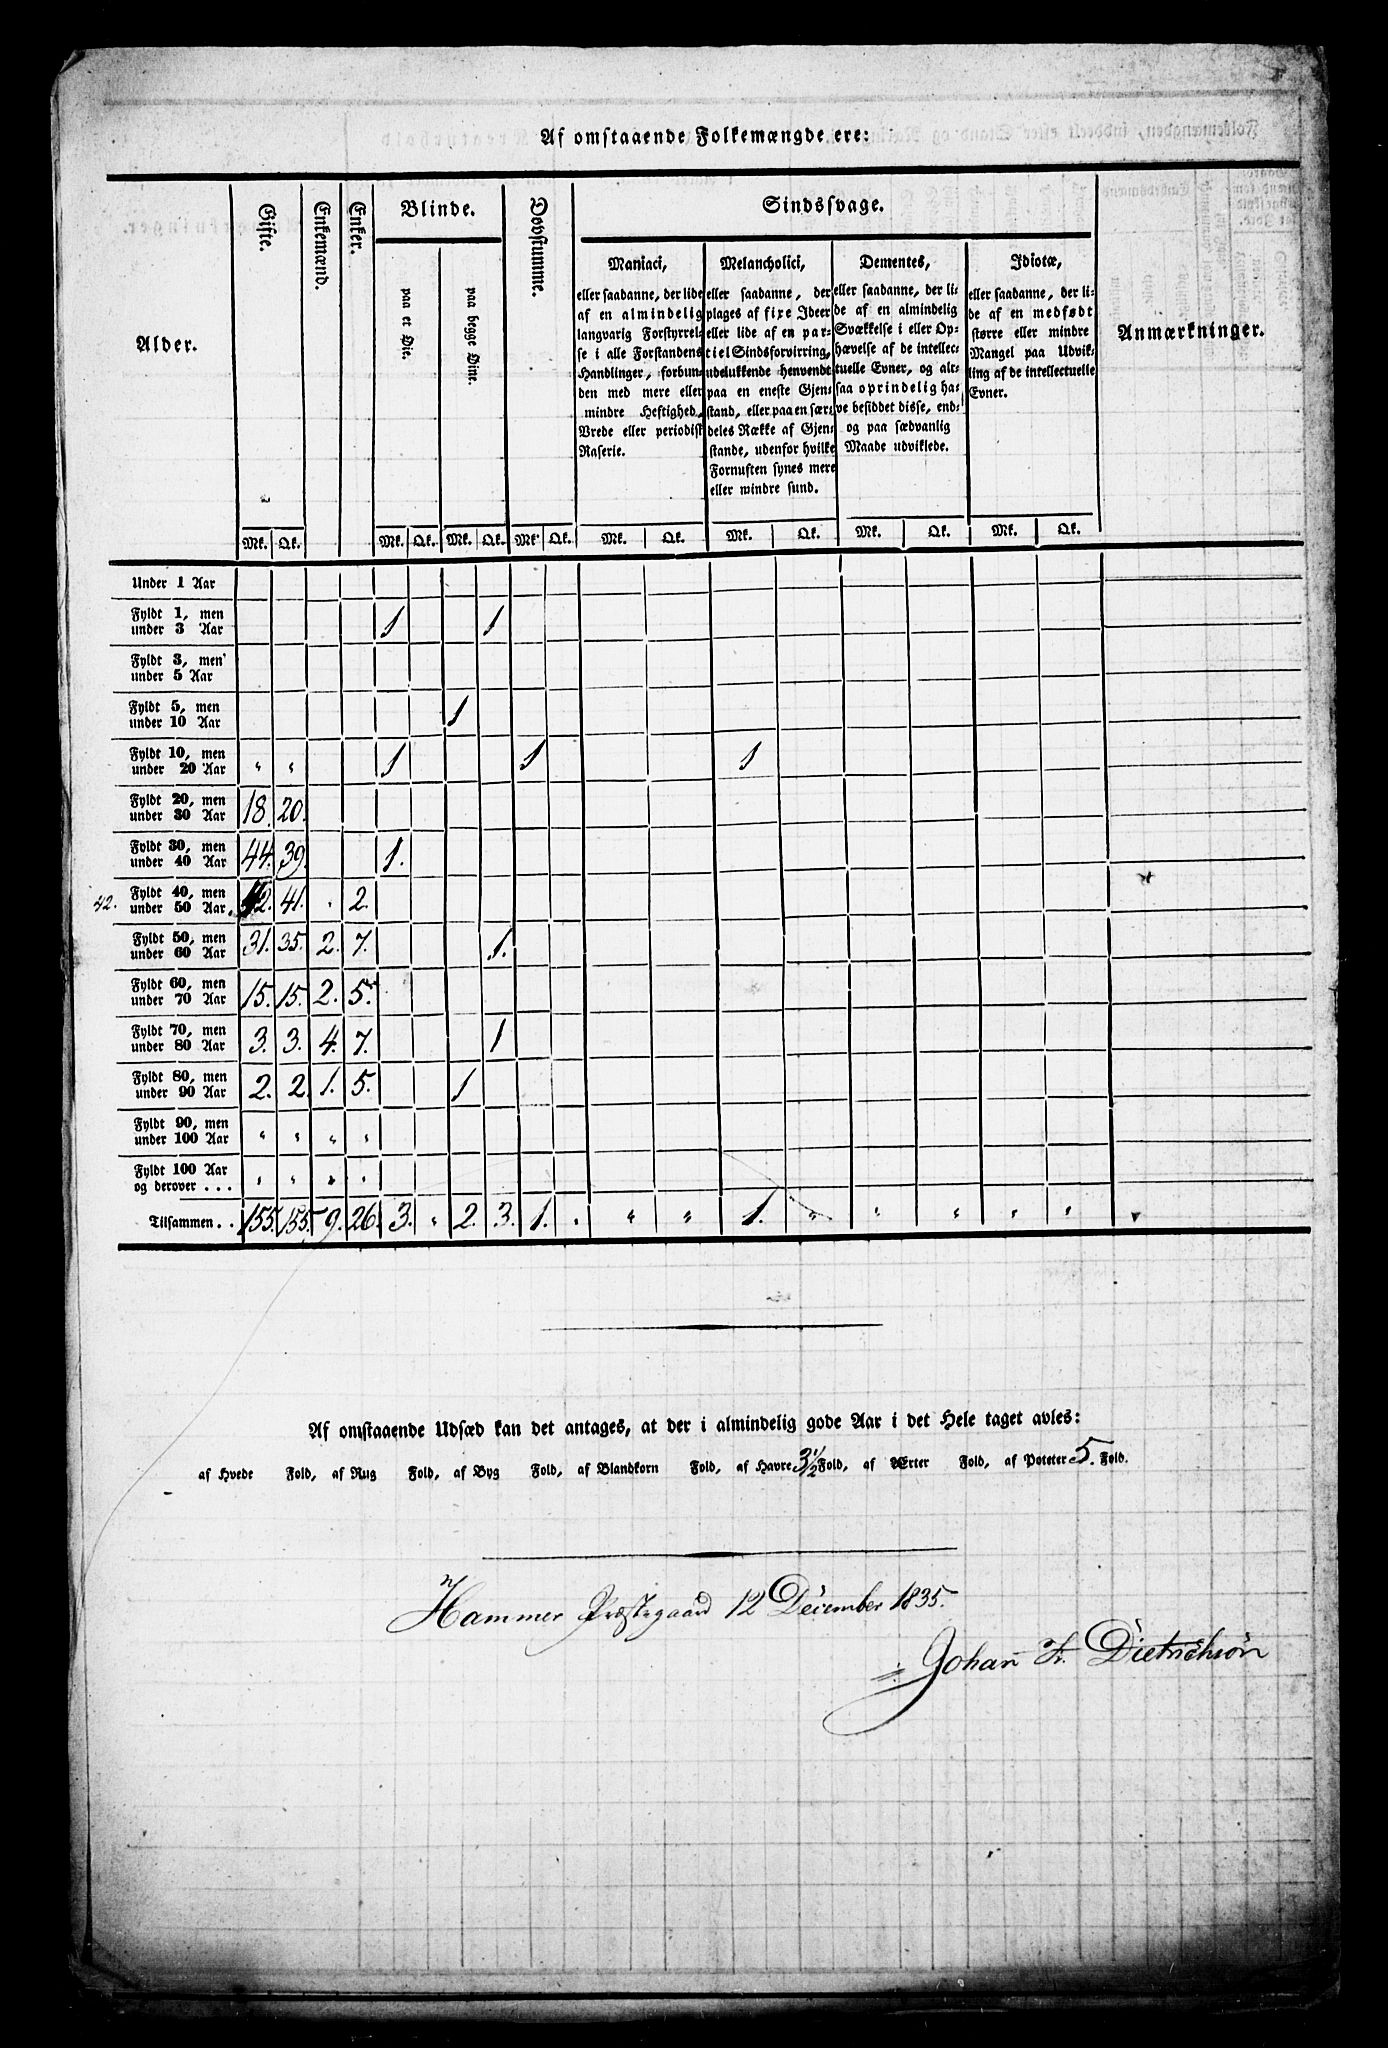 Af omstaaende Folkemængde ere:
Alder.
Gifte.
Enkemænd.
Enker.
Blinde.
paa et Øie.
paa begge Øine.
Døvstumme.
Sindssvage.
Maniaci,
eller saadanne, der lide
af en almindelig
langvarig Forstyrrel-
se i alle Forstandens
Handlinger, forbun-
den med mere eller
mindre Heftighed,
Vrede eller periodisk
Raserie.
Melancholici,
eller saadanne, der
plages af fixe Ideer
eller lide af en par-
tiel Sindsforvirring,
udelukkende henvendt
paa en eneste Gjen-
stand, eller paa en sær-
deles Række af Gjen-
stande, udenfor hvilke
Fornuften synes mere
eller mindre sund.
Dementes,
eller saadanne, der li-
de af en almindelig
Svækkelse i eller Op-
hævelse af de intellec-
tuelle Evner, og alt-
saa oprindelig ha-
ve besiddet disse, end-
og paa sædvanlig
Maade udviklede.
Idiotæ,
eller saadanne, der li-
de af en medfødt
større eller mindre
Mangel paa Udvik-
ling af de intellectuelle
Evner.
Anmærkninger.
Mk. Qk. Mk. Qk. Mk. Qk. Mk. Qk. Mk. Qk. Mk. Qk. Mk. Qk. Mk. Qk.
Under 1 Aar
Fyldt 1, men
under 3 Aar 1 1
Fyldt 3, men
under 5 Aar
Fyldt 5, men
under 10 Aar 1
Fyldt 10, men
under 20 Aar " " 1 1 1
Fyldt 20, men
under 30 Aar 18. 20.
Fyldt 30, men
under 40 Aar 44. 39. 1.
42. Fyldt 40, men
under 50 Aar. 42. 41. . 2.
Fyldt 50, men
under 60 Aar 31. 35. 2. 7. 1.
Fyldt 60, men
under 70 Aar 15. 15. 2. 5.
Fyldt 70, men
under 80 Aar 3. 3. 4. 7. 1
Fyldt 80, men
under 90 Aar 2. 2. 1. 5. 1
Fyldt 90, men
under 100 Aar " " " "
Fyldt 100 Aar
og derover . . . " " " "
Tilsammen . . 155. 155. 9. 26. 3. " 2. 3. 1. " " " 1. " " " " "
Af omstaaende Udsæd kan det antages, at der i almindelig gode Aar i det Hele taget avles:
af Hvede Fold, af Rug Fold, af Byg Fold, af Blandkorn Fold, af Havre 3½ Fold, af Ærter Fold, af Poteter 5. Fold.
Hammer Præstegaard 12 December 1835.
Johan F. Dietrichson